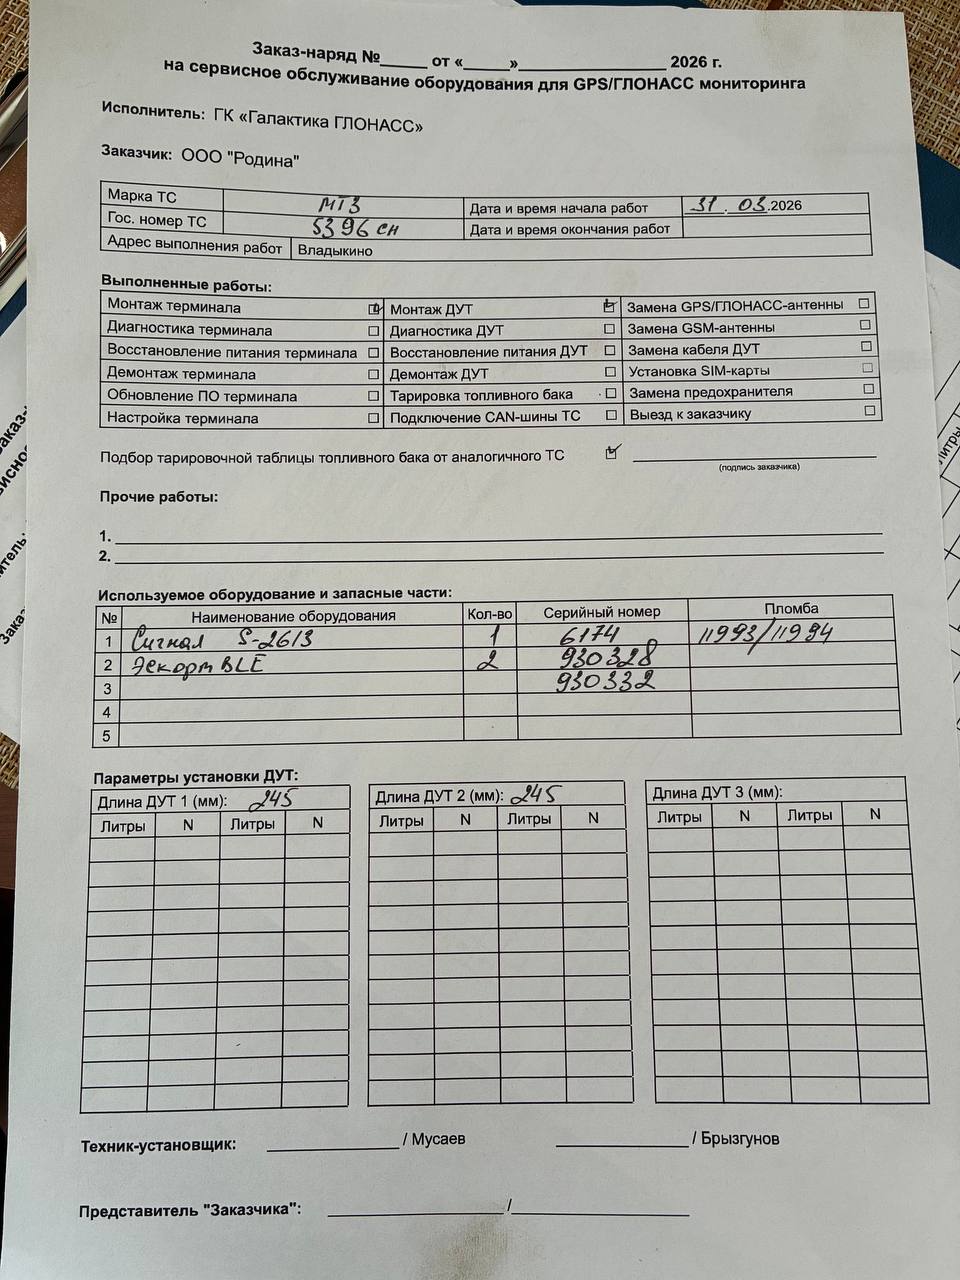 Заказ-наряд №_____ от «_____»_______________ 2026 г.
на сервисное обслуживание оборудования для GPS/ГЛОНАСС мониторинга
Исполнитель: ГК «Галактика ГЛОНАСС»
Заказчик: ООО "Родина"
Марка ТС МТЗ Дата и время начала работ 31.03.2026
Гос. номер ТС 5396 СН Дата и время окончания работ
Адрес выполнения работ Владыкино
Выполненные работы:
Монтаж терминала ☑ Монтаж ДУТ ☑ Замена GPS/ГЛОНАСС-антенны ☐
Диагностика терминала ☐ Диагностика ДУТ ☐ Замена GSM-антенны ☐
Восстановление питания терминала ☐ Восстановление питания ДУТ ☐ Замена кабеля ДУТ ☐
Демонтаж терминала ☐ Демонтаж ДУТ ☐ Установка SIM-карты ☐
Обновление ПО терминала ☐ Тарировка топливного бака ☐ Замена предохранителя ☐
Настройка терминала ☐ Подключение CAN-шины ТС ☐ Выезд к заказчику ☐
Подбор тарировочной таблицы топливного бака от аналогичного ТС ☑ _______________
(подпись заказчика)
Прочие работы:
1.
2.
Используемое оборудование и запасные части:
№ Наименование оборудования Кол-во Серийный номер Пломба
1 Сигнал S-2613 1 6174 11993/11994
2 Эскорт BLE 2 930328
3 930332
4
5
Параметры установки ДУТ:
Длина ДУТ 1 (мм): 245 Длина ДУТ 2 (мм): 245 Длина ДУТ 3 (мм):
Литры N Литры N Литры N Литры N Литры N Литры N
Техник-установщик: _______________ / Мусаев _______________ / Брызгунов
Представитель "Заказчика": _______________/_______________